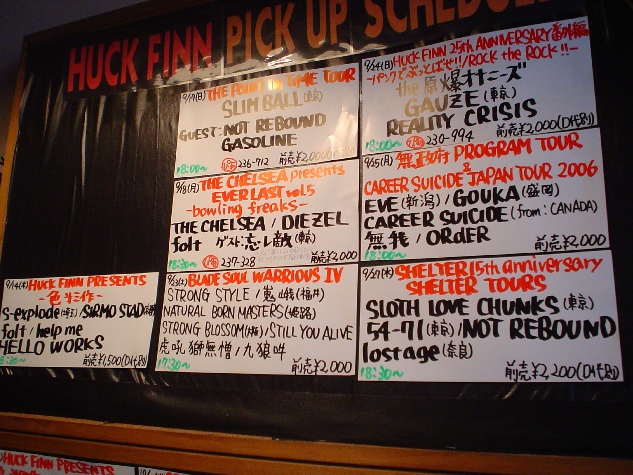 HUCK FINN PICK UP SCHEDULE
9/17(日) THE POINT OF TIME TOUR
SLIM BALL(東京)
GUEST: NOT REBOUND
GASOLINE
18:00〜 236-712 前売¥2,000
9/18(月) THE CHELSEA presents
EVER LAST vol.5
-bowling freaks-
THE CHELSEA / DIEZEL
folt ゲスト:忘レ敵(東京)
18:30〜 237-328 前売¥2,000
9/14(木) HUCK FINN PRESENTS
S-explode(埼玉)/SIRMO STAD
folt / help me
HELLO WORKS
18:30〜 前売¥1,500(D代別)
9/23(土) BLADE SOUL WARRIOUS IV
STRONG STYLE /
NATURAL BORN MASTERS(姫路)
STRONG BLOSSOM / STILL YOU ALIVE
虎吼 獅無憎 / 九狼吽
17:30〜 前売¥2,000
9/24(日) HUCK FINN 25th ANNIVERSARY 番外編
-パンクでぶっとばせ!!/ROCK the ROCK!!-
the 原爆オナニーズ
GAUZE(東京)
REALITY CRISIS
18:00〜 230-994 前売¥2,000(D代別)
9/25(月) 無政府 PROGRAM TOUR
&
CAREER SUICIDE JAPAN TOUR 2006
EVE(新潟)/GOUKA(盛岡)
CAREER SUICIDE(from:CANADA)
無我 / ORdER
18:00〜 前売¥2,000
9/27(水) SHELTER 15th anniversary
SHELTER TOURS
SLOTH LOVE CHUNKS(東京)
54-71(東京)/NOT REBOUND
lostage(奈良)
18:30〜 前売¥2,200(D代別)
HUCK FINN PRESENTS